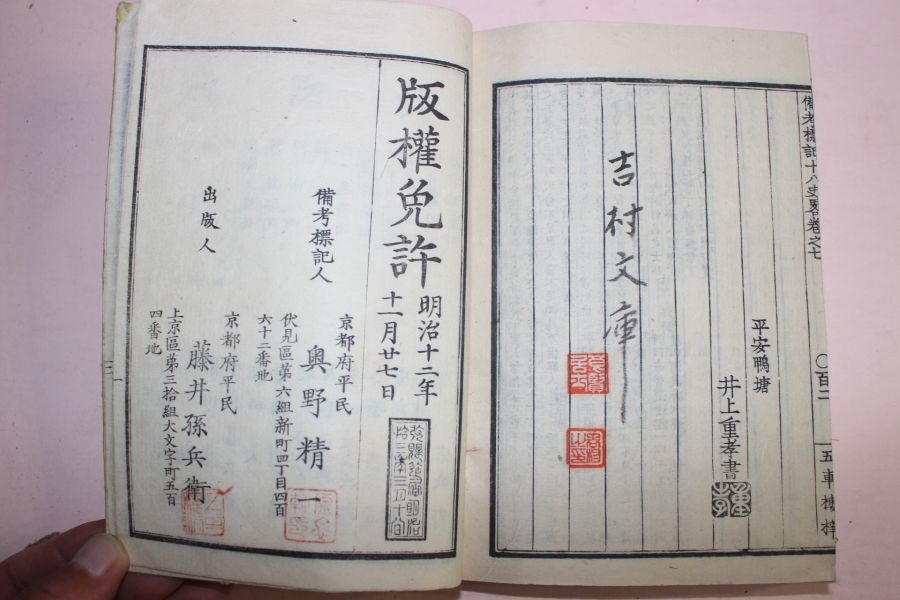 備考標記十八史畧卷之七
〇百二
五車樓梓
平安鴨塘
井上重孝書
重孝
吉村文庫
版權免許
明治十二年
十一月廿七日
備考標記人
京都府平民
奥野精一
伏見區第六組新町四丁目四百
六十二番地
出版人
京都府平民
藤井孫兵衛
上京區第三拾組大文字町五百
四番地